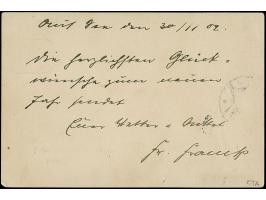 den 30/11 02.
Die herzlichsten Glück-
wünsche zum neuen
Jahr sendet
Euer Vetter & Onkel
Fr.